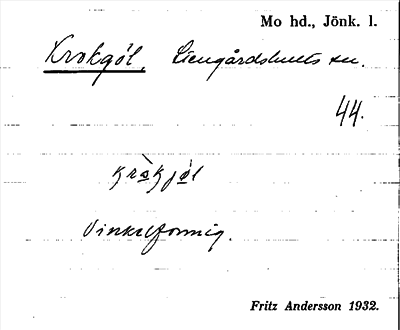 Mo hd., Jönk. l.
Krokgöl, Siengårdshults su.
44.
kràkjøl
Vinkelformig.
Fritz Andersson 1932.